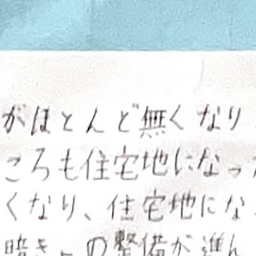 がほとんど無くなり
ころも住宅地になっ
くなり、住宅地にな
の整備が進ん